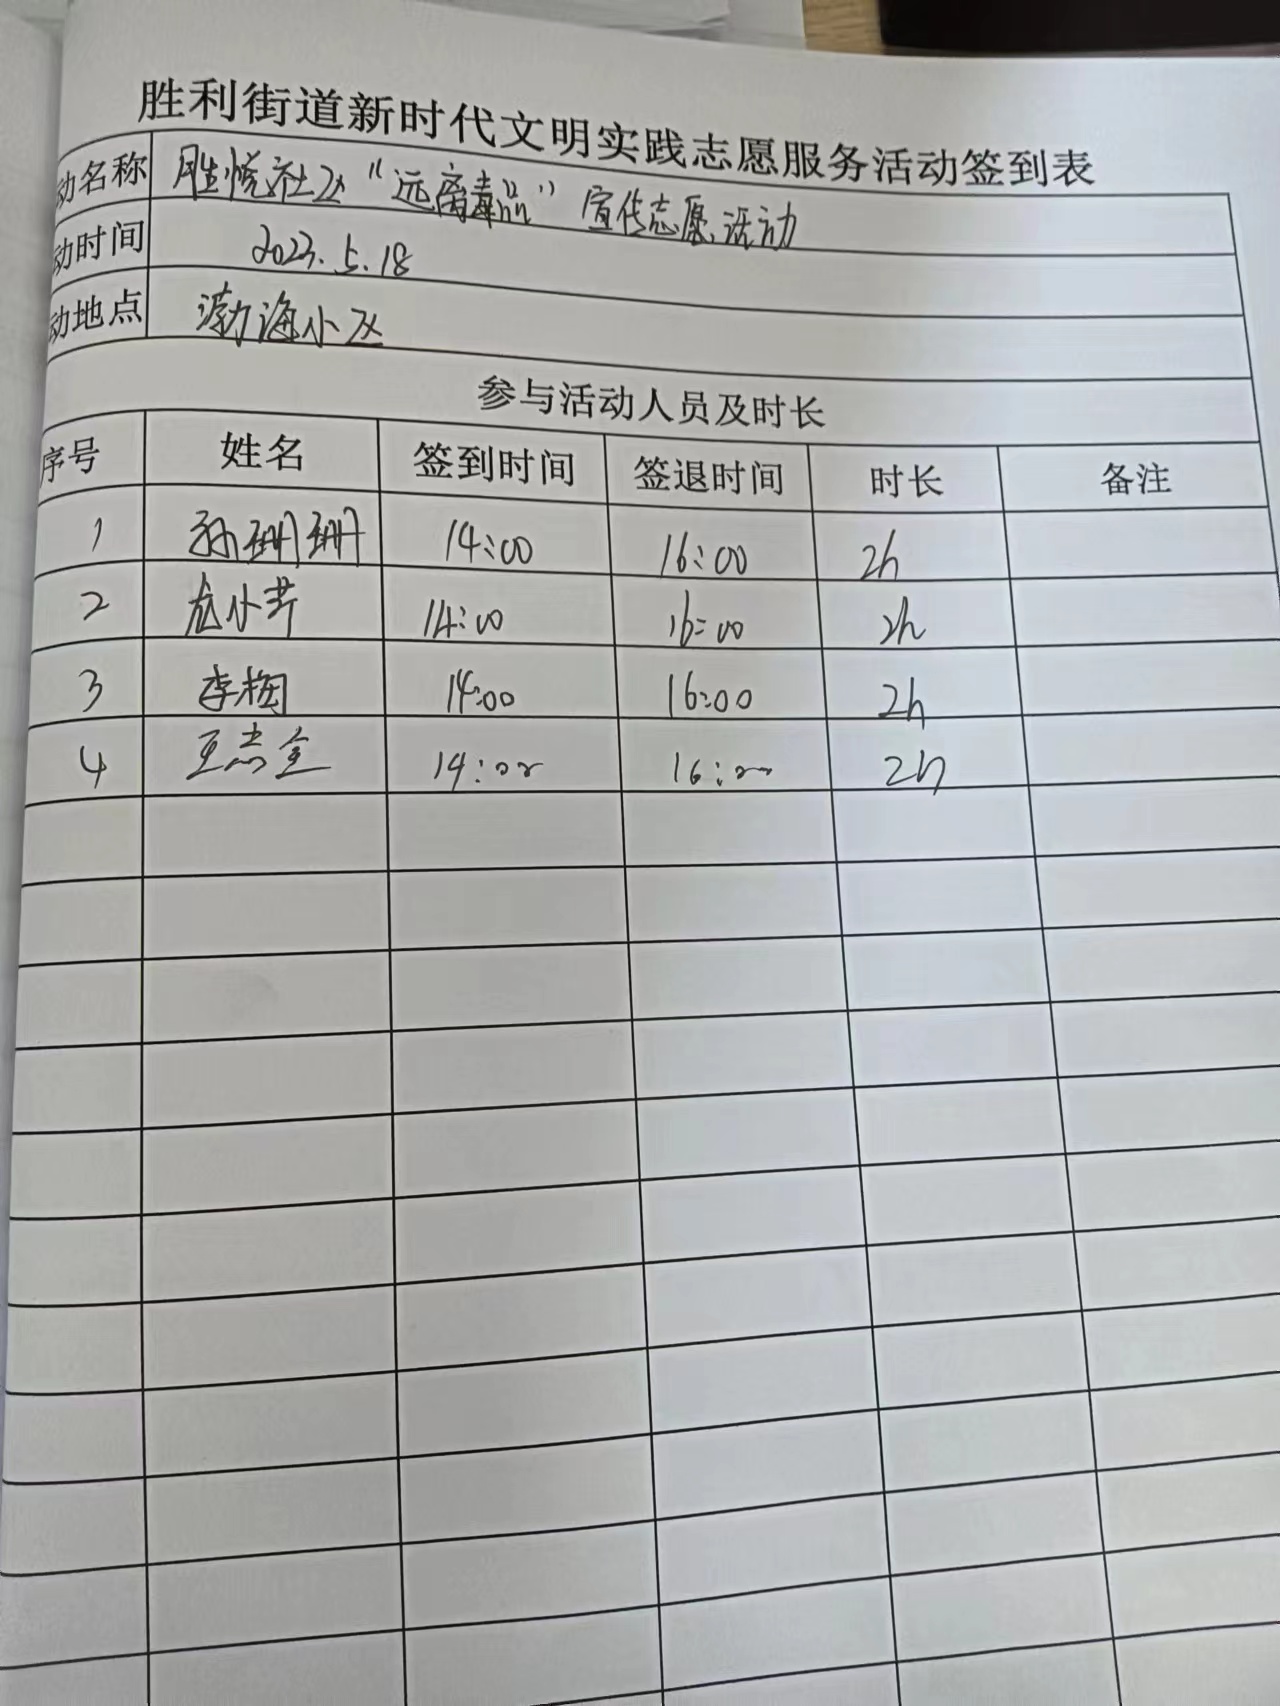 胜利街道新时代文明实践志愿服务活动签到表
动名称 胜悦社区“远离毒品”宣传志愿活动
动时间 2023.5.18
动地点 渤海小区
参与活动人员及时长
序号 姓名 签到时间 签退时间 时长 备注
1 孙珊珊 14:00 16:00 2h
2 尤小芹 14:00 16:00 2h
3 李梅 14:00 16:00 2h
4 王志全 14:00 16:00 2h